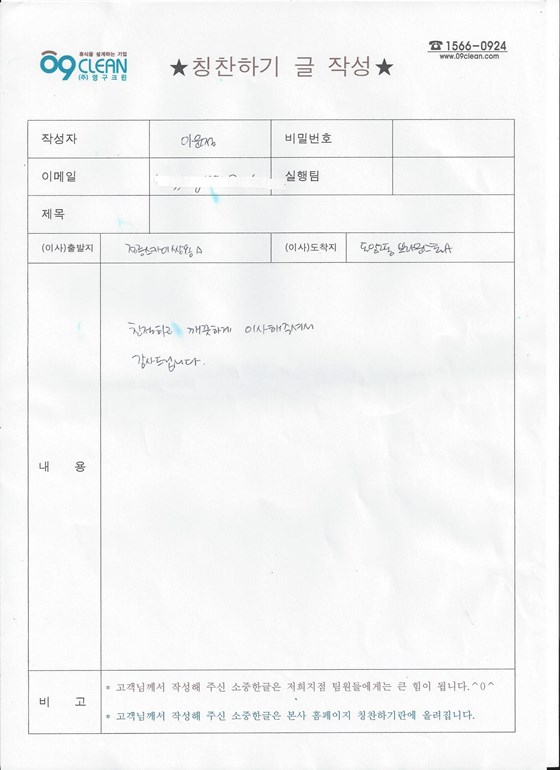 휴식을 설계하는 기업
09 CLEAN
(주) 영구크린
★칭찬하기 글 작성★
☎ 1566-0924
www.09clean.com
작성자 이윤정 비밀번호
이메일 실행팀
제목
(이사)출발지 (이사)도착지
친절하고 깨끗하게 이사해주셔서
감사드립니다.
내 용
비 고
* 고객님께서 작성해 주신 소중한글은 저희지점 팀원들에게는 큰 힘이 됩니다.^0^
* 고객님께서 작성해 주신 소중한글은 본사 홈페이지 칭찬하기란에 올려집니다.